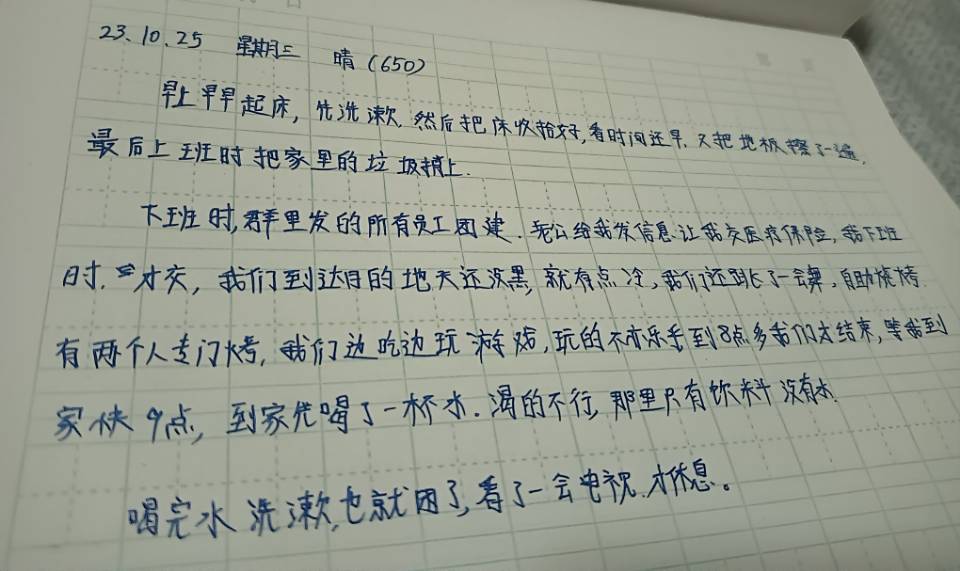 23.10.25 星期三 晴(650)
早上早早起床,先洗漱.然后把床收拾好,看时间还早.又把地板擦了一遍.
最后上班时把家里的垃圾捎上.
下班时,群里发的所有员工团建.老公给我发信息.让我交医疗保险,我下班
时.才交,我们到达目的地天还没黑,就有点冷,我们还跳了一会舞,自助烧烤
有两个人专门烤,我们边吃边玩游戏,玩的不亦乐乎到8点多我们才结束,等我到
家快9点,到家先喝了一杯水.渴的不行,那里只有饮料没有水.
喝完水洗漱,也就困了,看了一会电视.才休息。